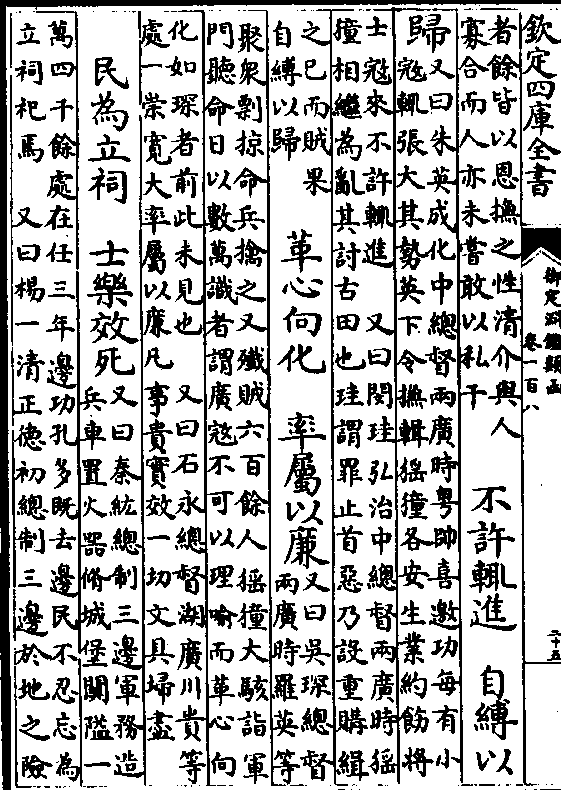 欽定四庫全書
御定淵鑑類函
卷一百八
二十五
者餘皆以恩撫之性清介與人
寡合而人亦未嘗敢以私干
不許輒進 自縛以
歸
又曰朱英成化中總督兩廣時粵帥喜邀功每有小
寇輒張大其勢英下令撫輯猺獞各安生業約飭將
士寇來不許輒進 又曰閔珪弘治中總督兩廣時猺
獞相繼為亂其討古田也珪謂罪止首惡乃設重購緝
之已而賊果
自縛以歸
革心向化 率屬以廉
又曰吳琛總督
兩廣時羅英等
聚衆剽掠命兵擒之又殲賊六百餘人猺獞大駭詣軍
門聽命日以數萬識者謂廣寇不可以理喻而革心向
化如琛者前此未見也 又曰石永總督湖廣川貴等
處一崇寬大率屬以廉凡事貴實效一切文具埽盡
民為立祠 士樂效死
又曰秦紘總制三邊軍務造
兵車置火器脩城堡關隘一
萬四千餘處在任三年邊功孔多既去邊民不忍忘為
立祠祀焉 又曰楊一清正德初總制三邊於地之險